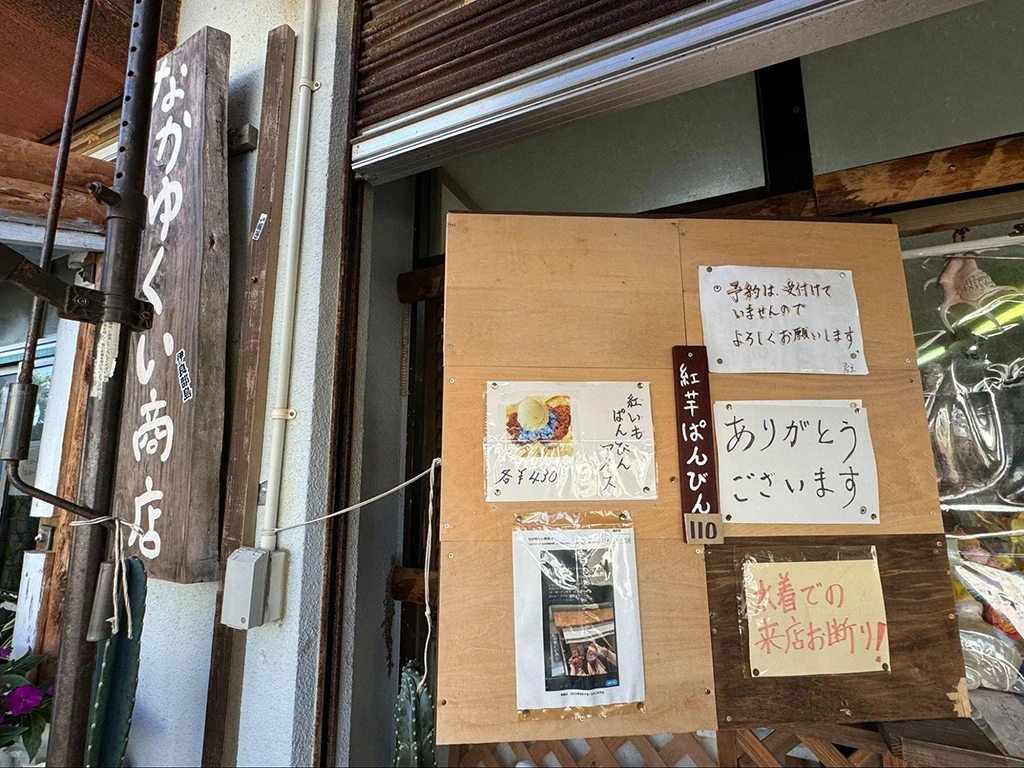 なかゆくい商店
伊良部島
予約は、受付けて
いませんので
よろしくお願いします
店主
紅いも
ぱんびん
アイス
各¥450
紅芋ぱんびん
110
ありがとう
ございます
水着での
来店お断り!